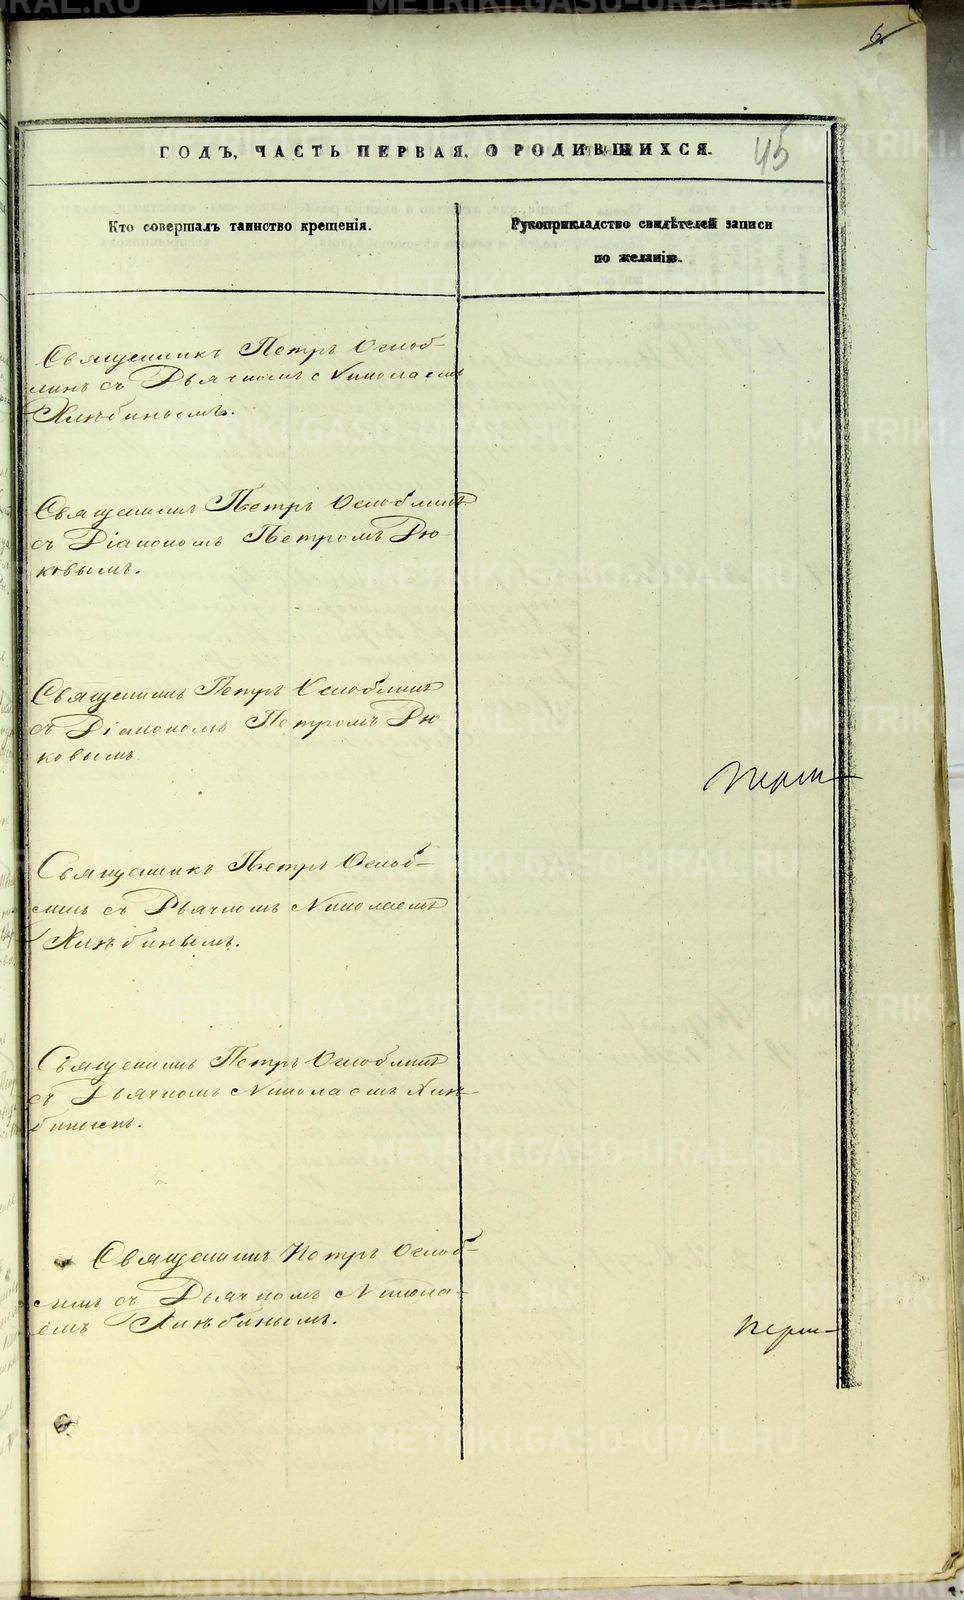 6.
ГОДЪ, ЧАСТЬ ПЕРВАЯ, О РОДИВШИХСЯ.
45
Кто совершалъ таинство крещенія.
Рукоприкладство свидѣтелей записи
по желанію.
Священникъ Петръ Оглоб-
линъ съ Дьячкомъ Николаемъ
Хлѣбинымъ.
Священникъ Петръ Оглоблинъ
съ Діакономъ Петромъ Дю-
ковымъ.
Священникъ Петръ Оглоблинъ
съ Діакономъ Петромъ Дю
ковымъ
Священникъ Петръ Оглоб-
линъ съ Дьячкомъ Николаемъ
Хлѣбинымъ.
Священникъ Петръ Оглоблинъ
съ Дьячкомъ Николаемъ Хлѣ-
бинымъ.
Священникъ Петръ Оглоб-
линъ съ Дьячкомъ Никола-
емъ Хлѣбинымъ.
METRIKI.GASO-URAL.RU